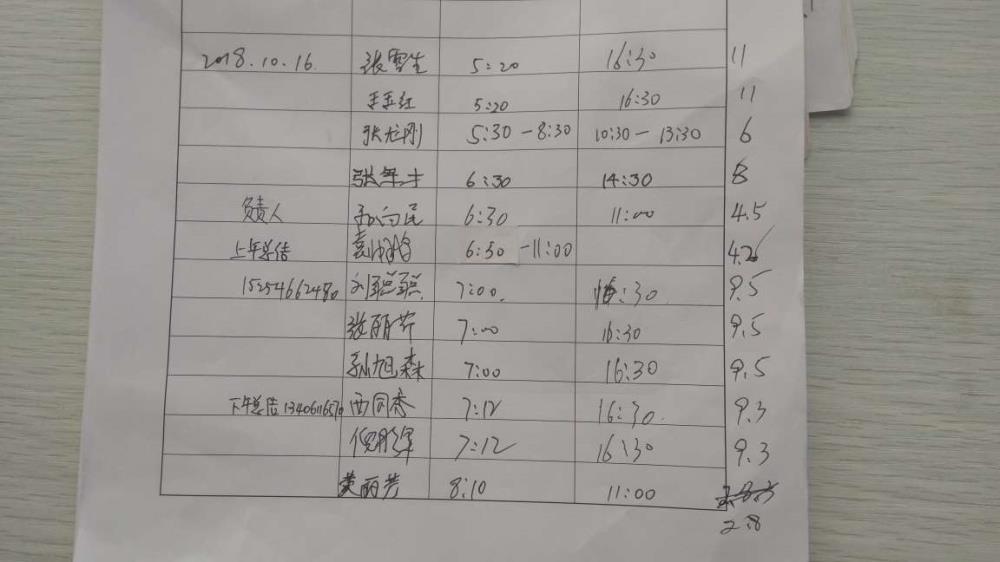 2018.10.16. 张雪生 5:20 16:30 11
王玉红 5:20 16:30 11
张龙刚 5:30-8:30 10:30-13:30 6
张军才 6:30 14:30 8
负责人 孙向民 6:30 11:00 4.5
上午总结 6:50-11:00
15254662480 刘聪聪 7:00. 16:30 9.5
张丽芹 7:00 16:30 9.5
孙旭森 7:00 16:30 9.5
下午总结 西同香 7:12 16:30. 9.3
倪彤军 7:12 16:30 9.3
黄丽芳 8:10 11:00
2.8